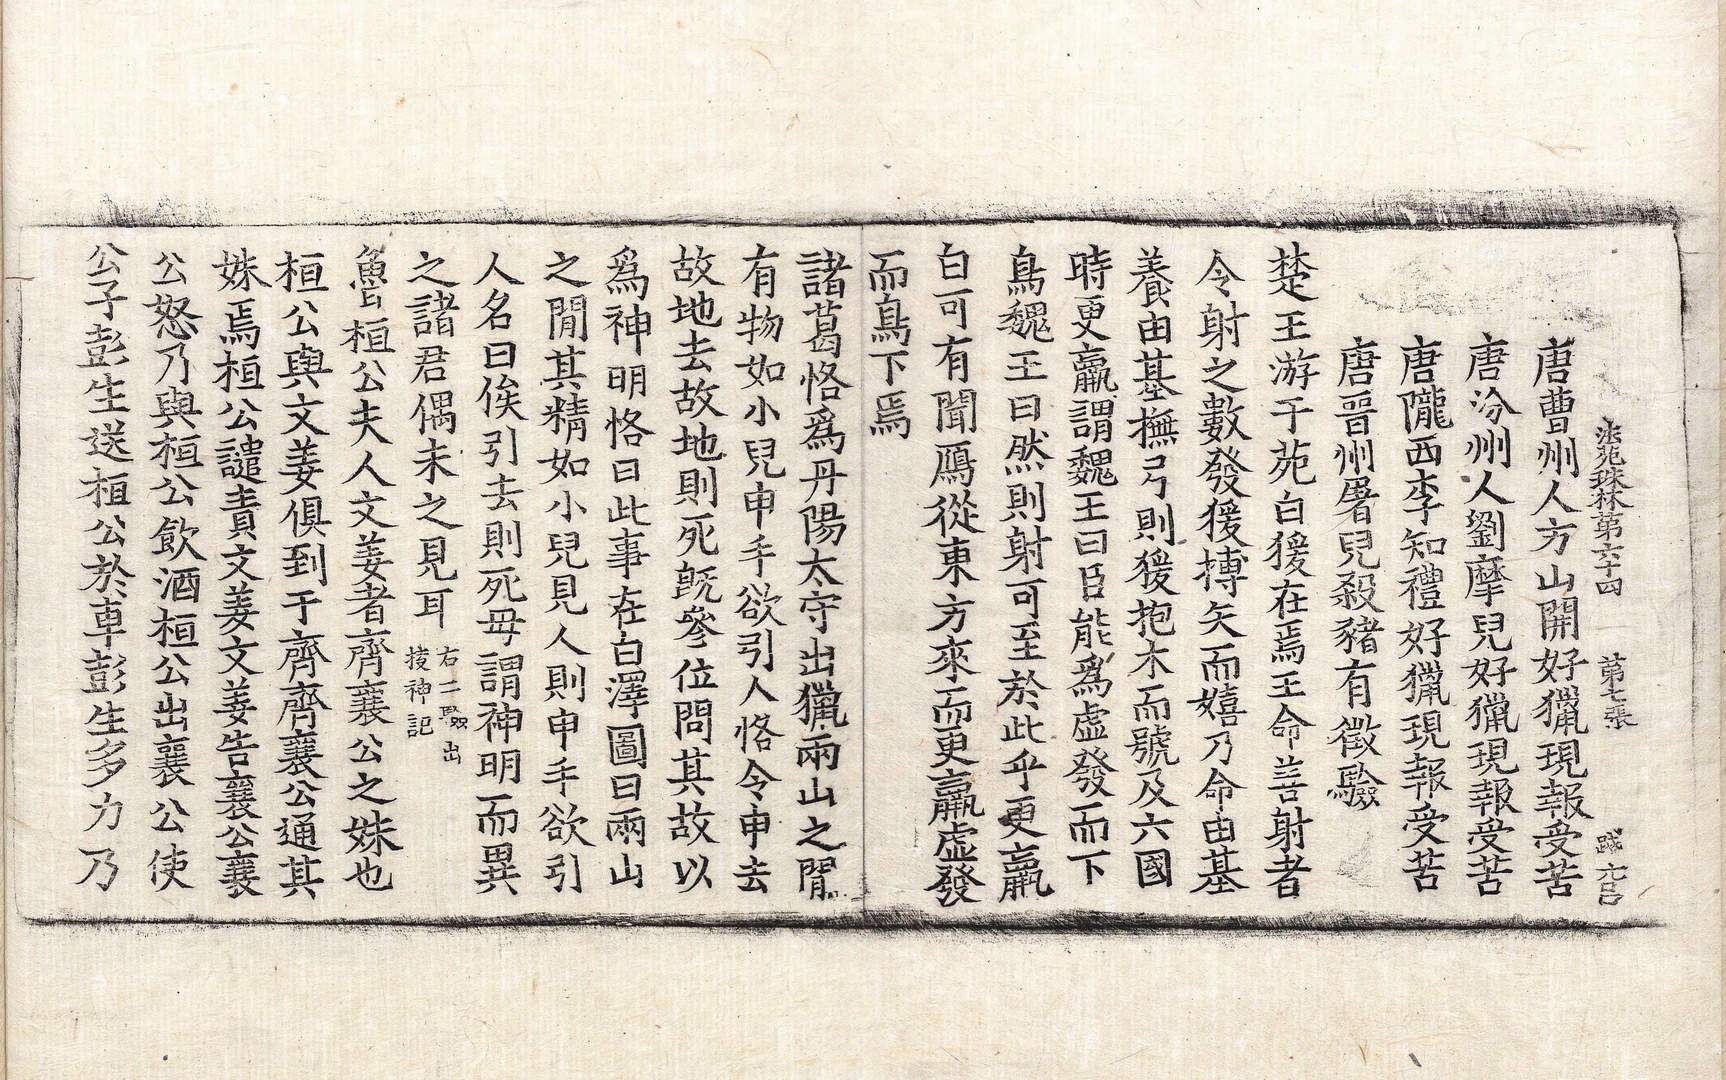 法苑珠林第六十四　第七張
唐曹州人方山開好獵現報受苦
唐汾州人劉摩兒好獵現報受苦
唐隴西李知禮好獵現報受苦
唐晉州屠兒殺豬有徵驗
楚王游于苑白猨在焉王命善射者
令射之數發猨搏矢而嬉乃命由基
養由基撫弓則猨抱木而號及六國
時更羸謂魏王曰臣能爲虛發而下
鳥魏王曰然則射可至於此乎更羸
白可有聞鴈從東方來而更羸虛發
而鳥下焉
諸葛恪爲丹陽太守出獵兩山之閒
有物如小兒申手欲引人恪令申去
故地去故地則死旣參位問其故以
爲神明恪曰此事在白澤圖曰兩山
之閒其精如小兒見人則申手欲引
人名曰俟引去則死毋謂神明而異
之諸君偶未之見耳
右二驗出
搜神記
魯桓公夫人文姜者齊襄公之姝也
桓公與文姜俱到于齊齊襄公通其
姝焉桓公譴責文姜文姜告襄公襄
公怒乃與桓公飲酒桓公出襄公使
公子彭生送桓公於車彭生多力乃